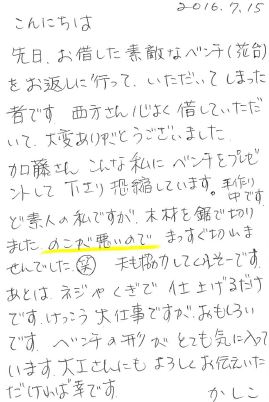 2016.7.15
こんにちは
先日、お借した素敵なベンチ(花台)
をお返しに行って、いただいてしまった
者です 西方さん心よく借していただ
いて、大変ありがとうございました。
加藤さん こんな私に ベンチをプレゼ
ントして 下さり恐縮しています。手作り
中です
ど素人の私ですが、木材を鋸で切り
ました のこが悪いので まっすぐ切れま
せんでした(笑) 夫も協力してくれそーです。
あとは、ネジやくぎで 仕上げるだけ
です。けっこう大仕事ですが、おもしろい
です。ベンチの形が とても気に入って
います。大工さんにも よろしくお伝えいた
だければ幸です。
かしこ